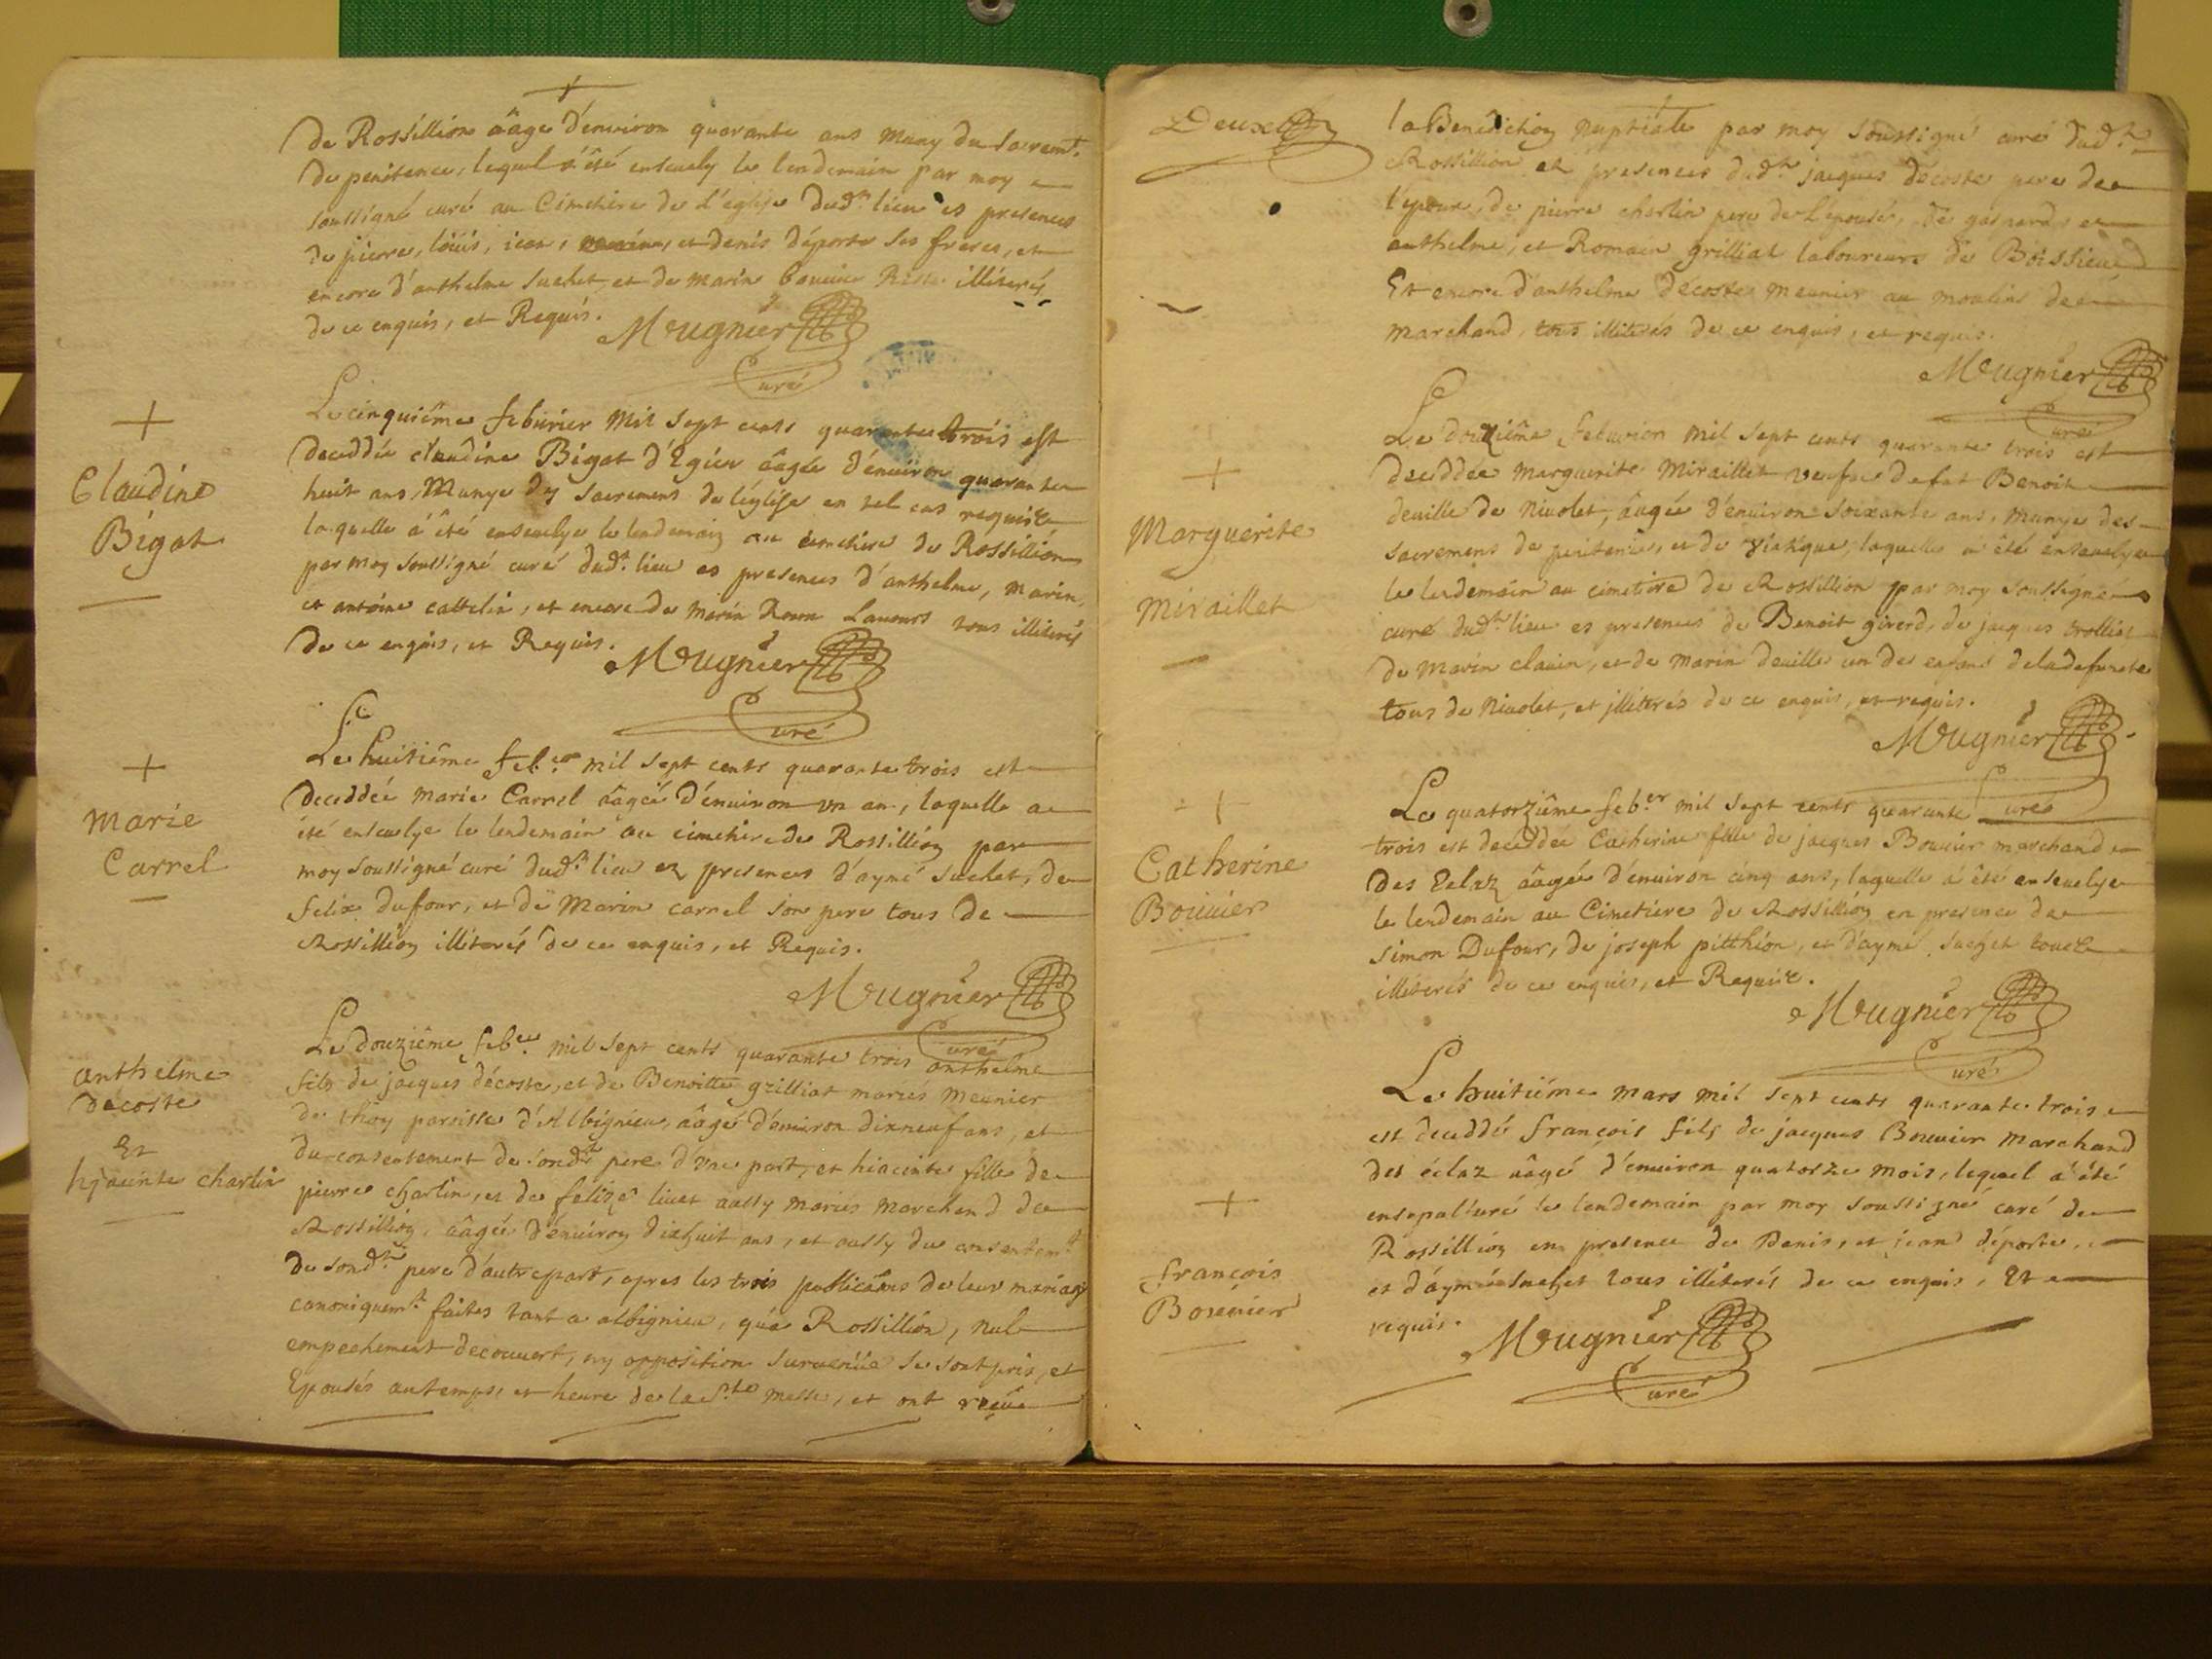 de Rossillion ââgé d'énuiron quarante ans muny du sacremt.
de penitence, lequel a été enseuely le lendemain par moy
soussigné curé au Cimetiere de L'église dudt. lieu es presences
de pierre, loüis, jean, et denis déporte ses freres, et
encore d'anthelme suchet, et de marin illiterés
de ce enquis, et Requis. Mugnier
Curé
+
Claudine
Bigot
Le cinquiême feburier mil sept cents quarante trois est
deceddée claudine Bigot d'Egieu ââgée d'énuiron quarante
huit ans, Munye des sacremens de léglise en tel cas requise
laquelle à été enseuelye le lendemain au cimetiere de Rossillion
par moy soussigné curé dudt. lieu es presences d'anthelme, marin,
et antoine cattelin, et encore de marin tous illiterés
de ce enquis, et Requis. Mugnier
Curé
+
marie
Carrel
Le huitiême feber mil sept cents quarante trois est
deceddée marie Carrel ââgée d'énuiron vn an, laquelle a
été enseuelye le lendemain au cimetiere de Rossillion par
moy soussigné curé dudt. lieu ez presences d'aymé suchet, de
felix dufour, et de Marin carrel son pere tous de
Rossillion illiterés de ce enquis, et Requis.
Mugnier
Curé
anthelme
décoste
Et
hyacinte charlin
Le douziême feber mil sept cents quarante trois anthelme
fils de jacques décoste, et de Benoitte grilliat mariés meunier
de thoy paroisse d'Albignieu, ââgé d'énuiron dixneuf ans, et
du consentement de sondt. pere d'vne part, et hiacinte fille de
pierre charlin, et de felize liuet aussy mariés marchand de
Rossillion, ââgée d'énuiron dixhuit ans, et aussy du consentemt.
de sondt. pere d'autre part, apres les trois publicaons de leur mariage
canoniquemt. faites tant a albignieu, qua Rossillion, nul
empechement decouuert, ny opposition suruenüe se sont pris, et
Epousés au temps, et heure de la ste. messe, et ont reçüe
Deux
la Benediction nuptiale par moy soussigné curé dudt.
Rossillion et presences dudt. jacques décoste pere de
l'époux, de pierre charlin pere de L'épouse, de gaspard, et
anthelme, et Romain grilliat laboureurs de Boissieu
Et encore d'anthelme décoste meunier au moulin de
marchand, tous illiterés de ce enquis, et requis.
Mugnier
Curé
+
Marguerite
miraillet
Le douziême mil sept cents quarante trois est
deceddée marguerite miraillet veufue defut Benoit
deuille de niuolet, ââgée d'énuiron soixante ans, munye des
sacremens de penitence, et de viatique, laquelle a été enseuelye
le lendemain au cimetiere de Rossillion par moy soussigné
curé dudt. lieu es presences de Benoit girerd, de jacques trolliet
de marin clauin, et de marin deuille un des enfans de la defuncte
tous de niuolet, et jlliterés de ce enquis, et requis.
Mugnier
Curé
+
Catherine
Bouuier
Le quatorziême feber mil sept cents quarante
trois est deceddée Catherine fille de jacques Bouuier marchand
des Eclaz ââgée d'énuiron cinq ans, laquelle à été enseuelye
le lendemain au Cimetiere de Rossillion en presence de
simon Dufour, de joseph pitthion, et d'aymé suchet touts
illiterés de ce enquis, et Requis.
Mugnier
Curé
+
françois
Bouuier
Le huitiême mars mil sept cents quarante trois
est deceddé françois fils de jacques Bouuier marchand
des éclaz ââgé d'énuiron quatorze mois, lequel à été
ensepulturé le lendemain par moy soussigné curé de
Rossillion en presence de Denis, et jean déporte,
et d'aymé suchet tous illiterés de ce enquis, Et
requis. Mugnier
Curé